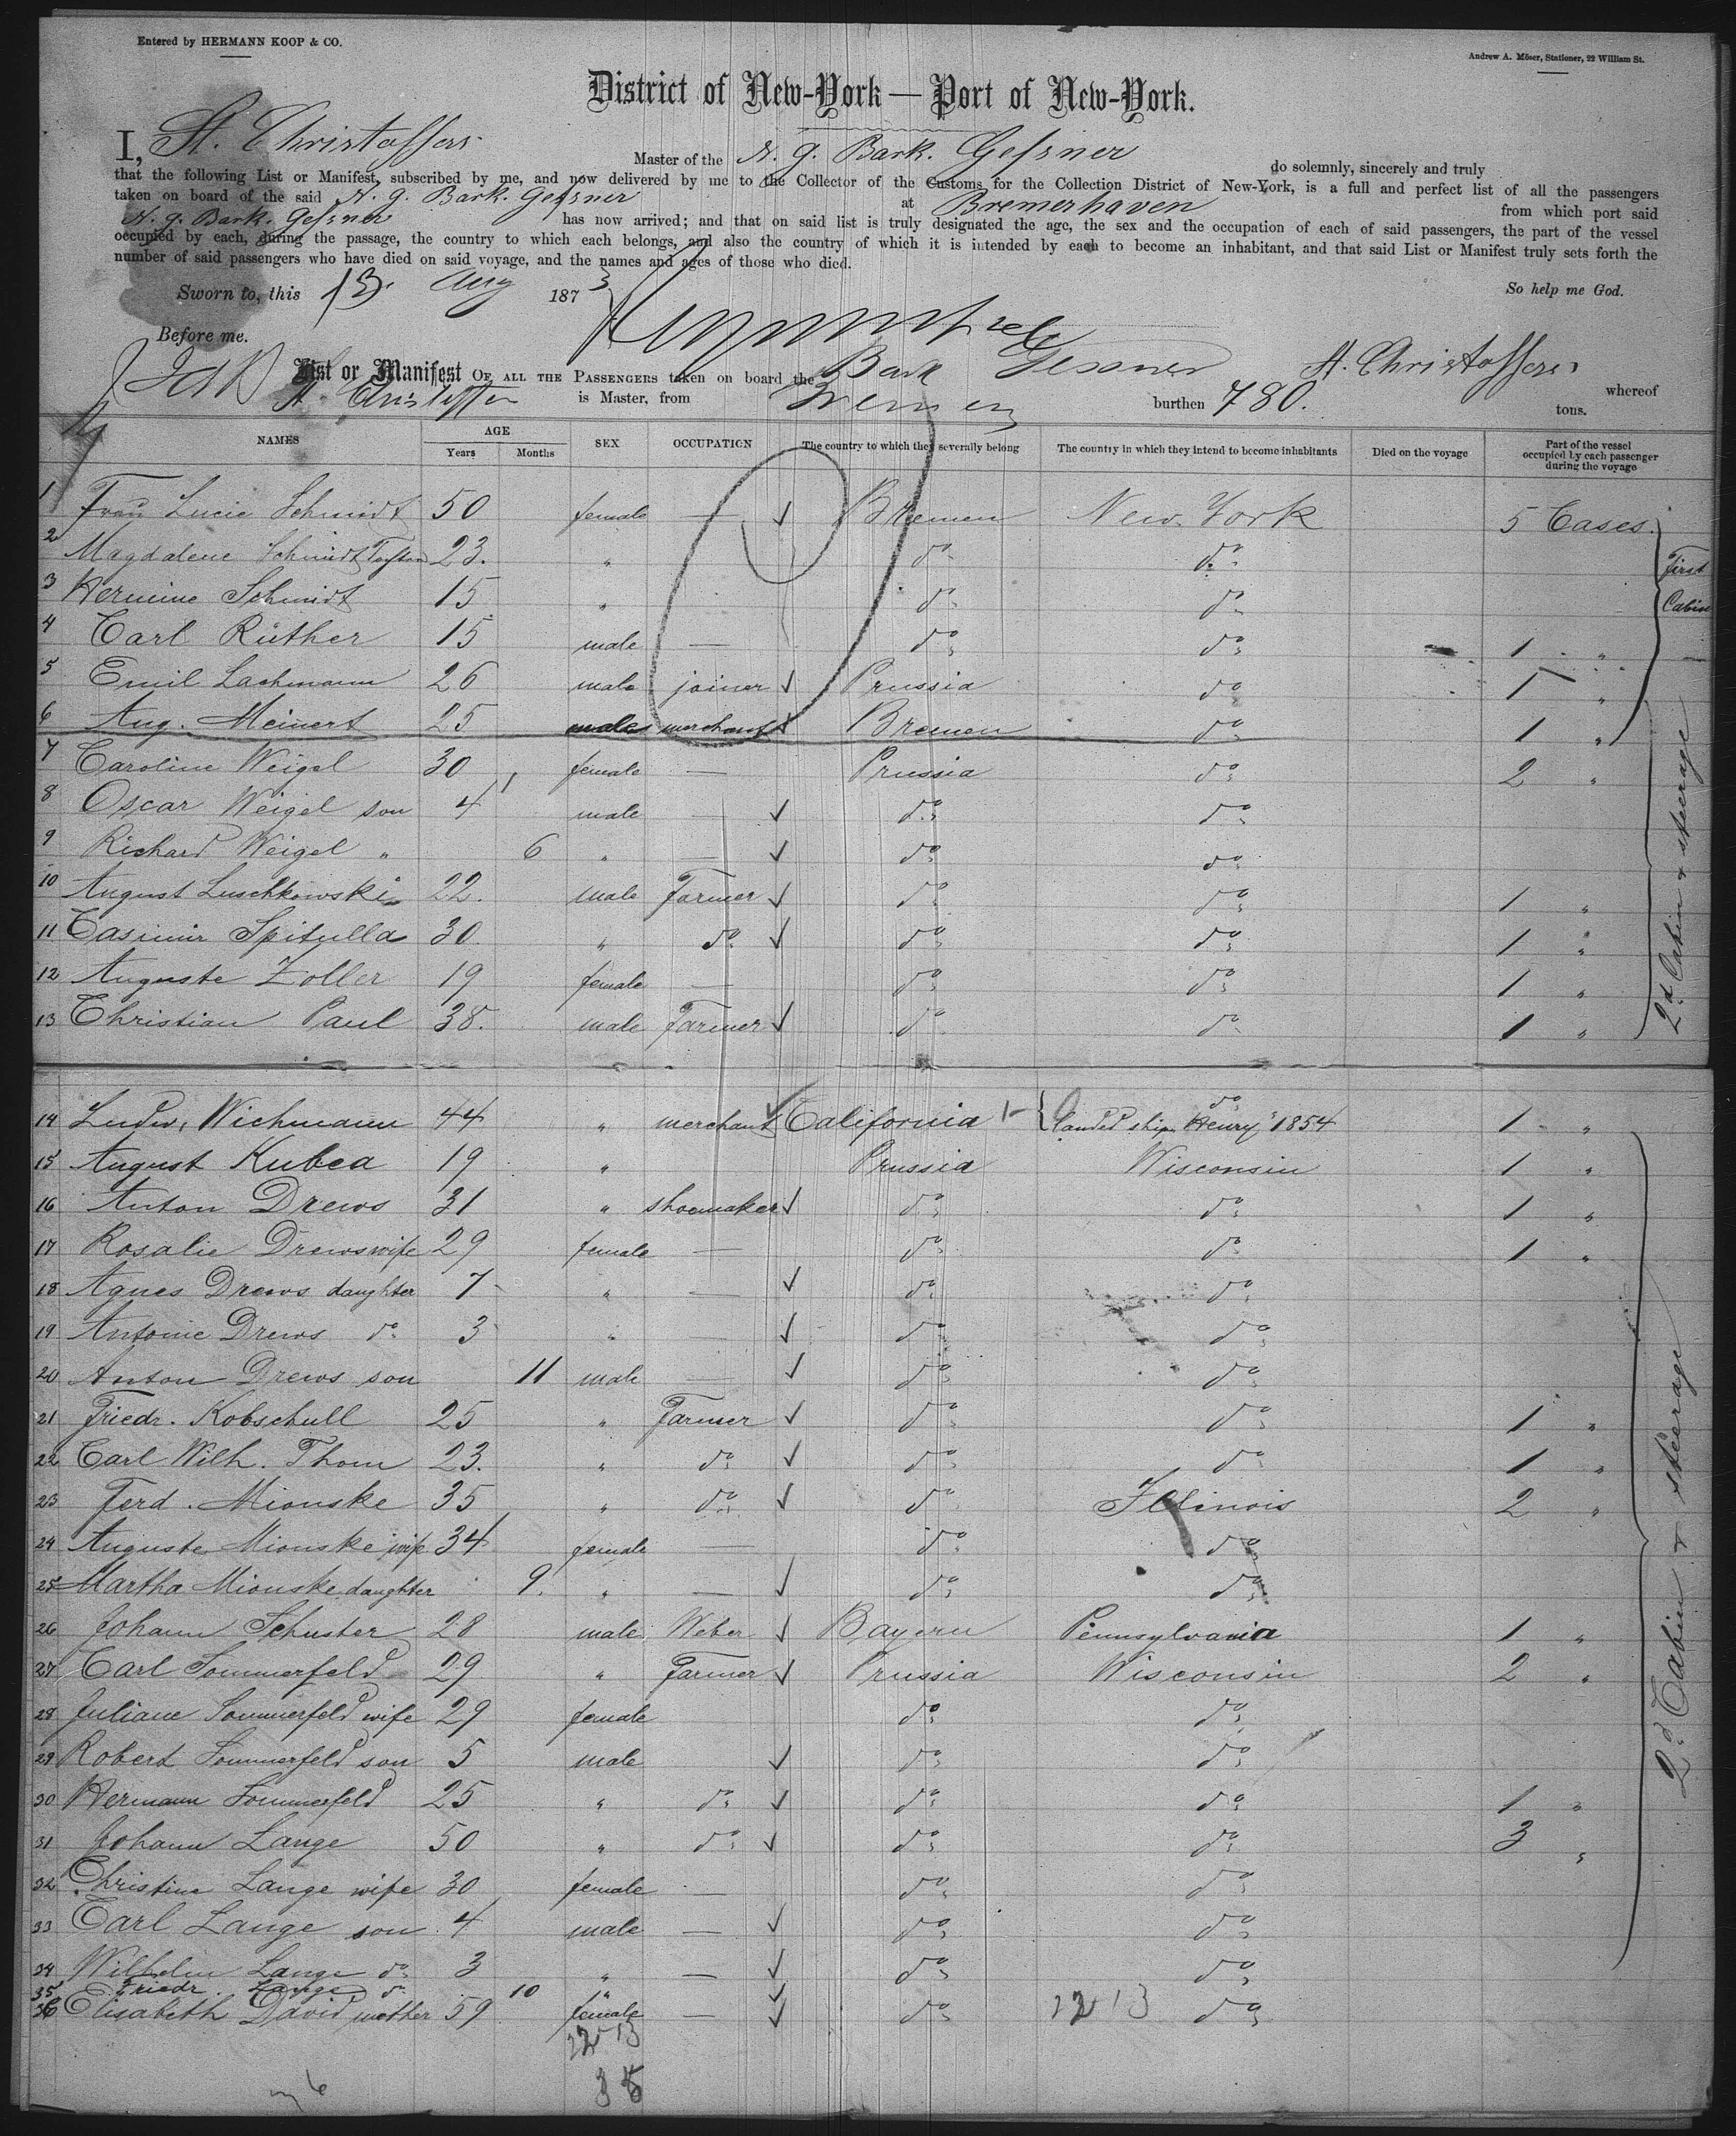 Entered by HERMANN KOOP & CO.
Andrew A. Möser, Stationer, 22 William St.
District of New-York — Port of New-York.
I, H. Christoffers Master of the N. G. Bark. Gessner do solemnly, sincerely and truly
that the following List or Manifest, subscribed by me, and now delivered by me to the Collector of the Customs for the Collection District of New-York, is a full and perfect list of all the passengers
taken on board of the said N. G. Bark. Gessner at Bremerhaven from which port said
N. G. Bark. Gessner has now arrived; and that on said list is truly designated the age, the sex and the occupation of each of said passengers, the part of the vessel
occupied by each, during the passage, the country to which each belongs, and also the country of which it is intended by each to become an inhabitant, and that said List or Manifest truly sets forth the
number of said passengers who have died on said voyage, and the names and ages of those who died.
Sworn to, this 13. Aug 1873 So help me God.
Before me. H. Christoffers
List or Manifest OF ALL THE PASSENGERS taken on board the Bark Gessner whereof
H. Christoffers is Master, from Bremen burthen 780. tons.
NAMES AGE Years Months SEX OCCUPATION The country to which they severally belong The country in which they intend to become inhabitants Died on the voyage Part of the vessel occupied by each passenger during the voyage
1 Frau Lucie Schmidt 50 female — Bremen New-York 5 Cases.
2 Magdalene Schmidt 23. " do do First
3 Hermine Schmidt 15 " do do Cabin
4 Carl Rüther 15 male — do do 1 "
5 Emil Lachmann 26 male joiner Prussia do 1 "
6 Aug. Meinert 25 male merchant Bremen do 1 "
7 Caroline Weigel 30 female — Prussia do 2 "
8 Oscar Weigel son 4 male — do do
9 Richard Weigel " 6 " — do do
10 August Luschkowski 22. male Farmer do do 1 "
11 Casimir Spitulla 30. " do do do 1 "
12 Auguste Zoller 19 female — do do 1 "
13 Christian Paul 38. male Farmer do do 1 "
2d Cabin & steerage
14 Ludw. Wichmann 44 " merchant California do landed ship "Henry" 1854 1 "
15 August Kubea 19 " Prussia Wisconsin 1 "
16 Anton Drews 31 " shoemaker do do 1 "
17 Rosalie Drews wife 29 female — do do 1 "
18 Agnes Drews daughter 7 " — do do
19 Antonie Drews do 3 " — do do
20 Anton Drews son 11 male — do do
21 Friedr. Kobschull 25 " Farmer do do 1 "
22 Carl Wilh. Thom 23. " do do do 1 "
23 Ferd. Mionske 35 " do do Illinois 2 "
24 Auguste Mionske wife 34 female — do do
25 Martha Mionske daughter 9. " — do do
26 Johann Schuster 28 male Weber Bayern Pennsylvania 1 "
27 Carl Sommerfeld 29 " Farmer Prussia Wisconsin 2 "
28 Juliane Sommerfeld wife 29 female do do
29 Robert Sommerfeld son 5 male do do
30 Hermann Sommerfeld 25 " do do do 1 "
31 Johann Lange 50 " do do do 3 "
32 Christine Lange wife 30 female — do do
33 Carl Lange son 4 male — do do
34 Wilhelm Lange do 3 " — do do
35 Friedr. Lange do 10 "
36 Elisabeth David mother 59 female — do 22 13 do
2d Cabin & steerage
22 13
35